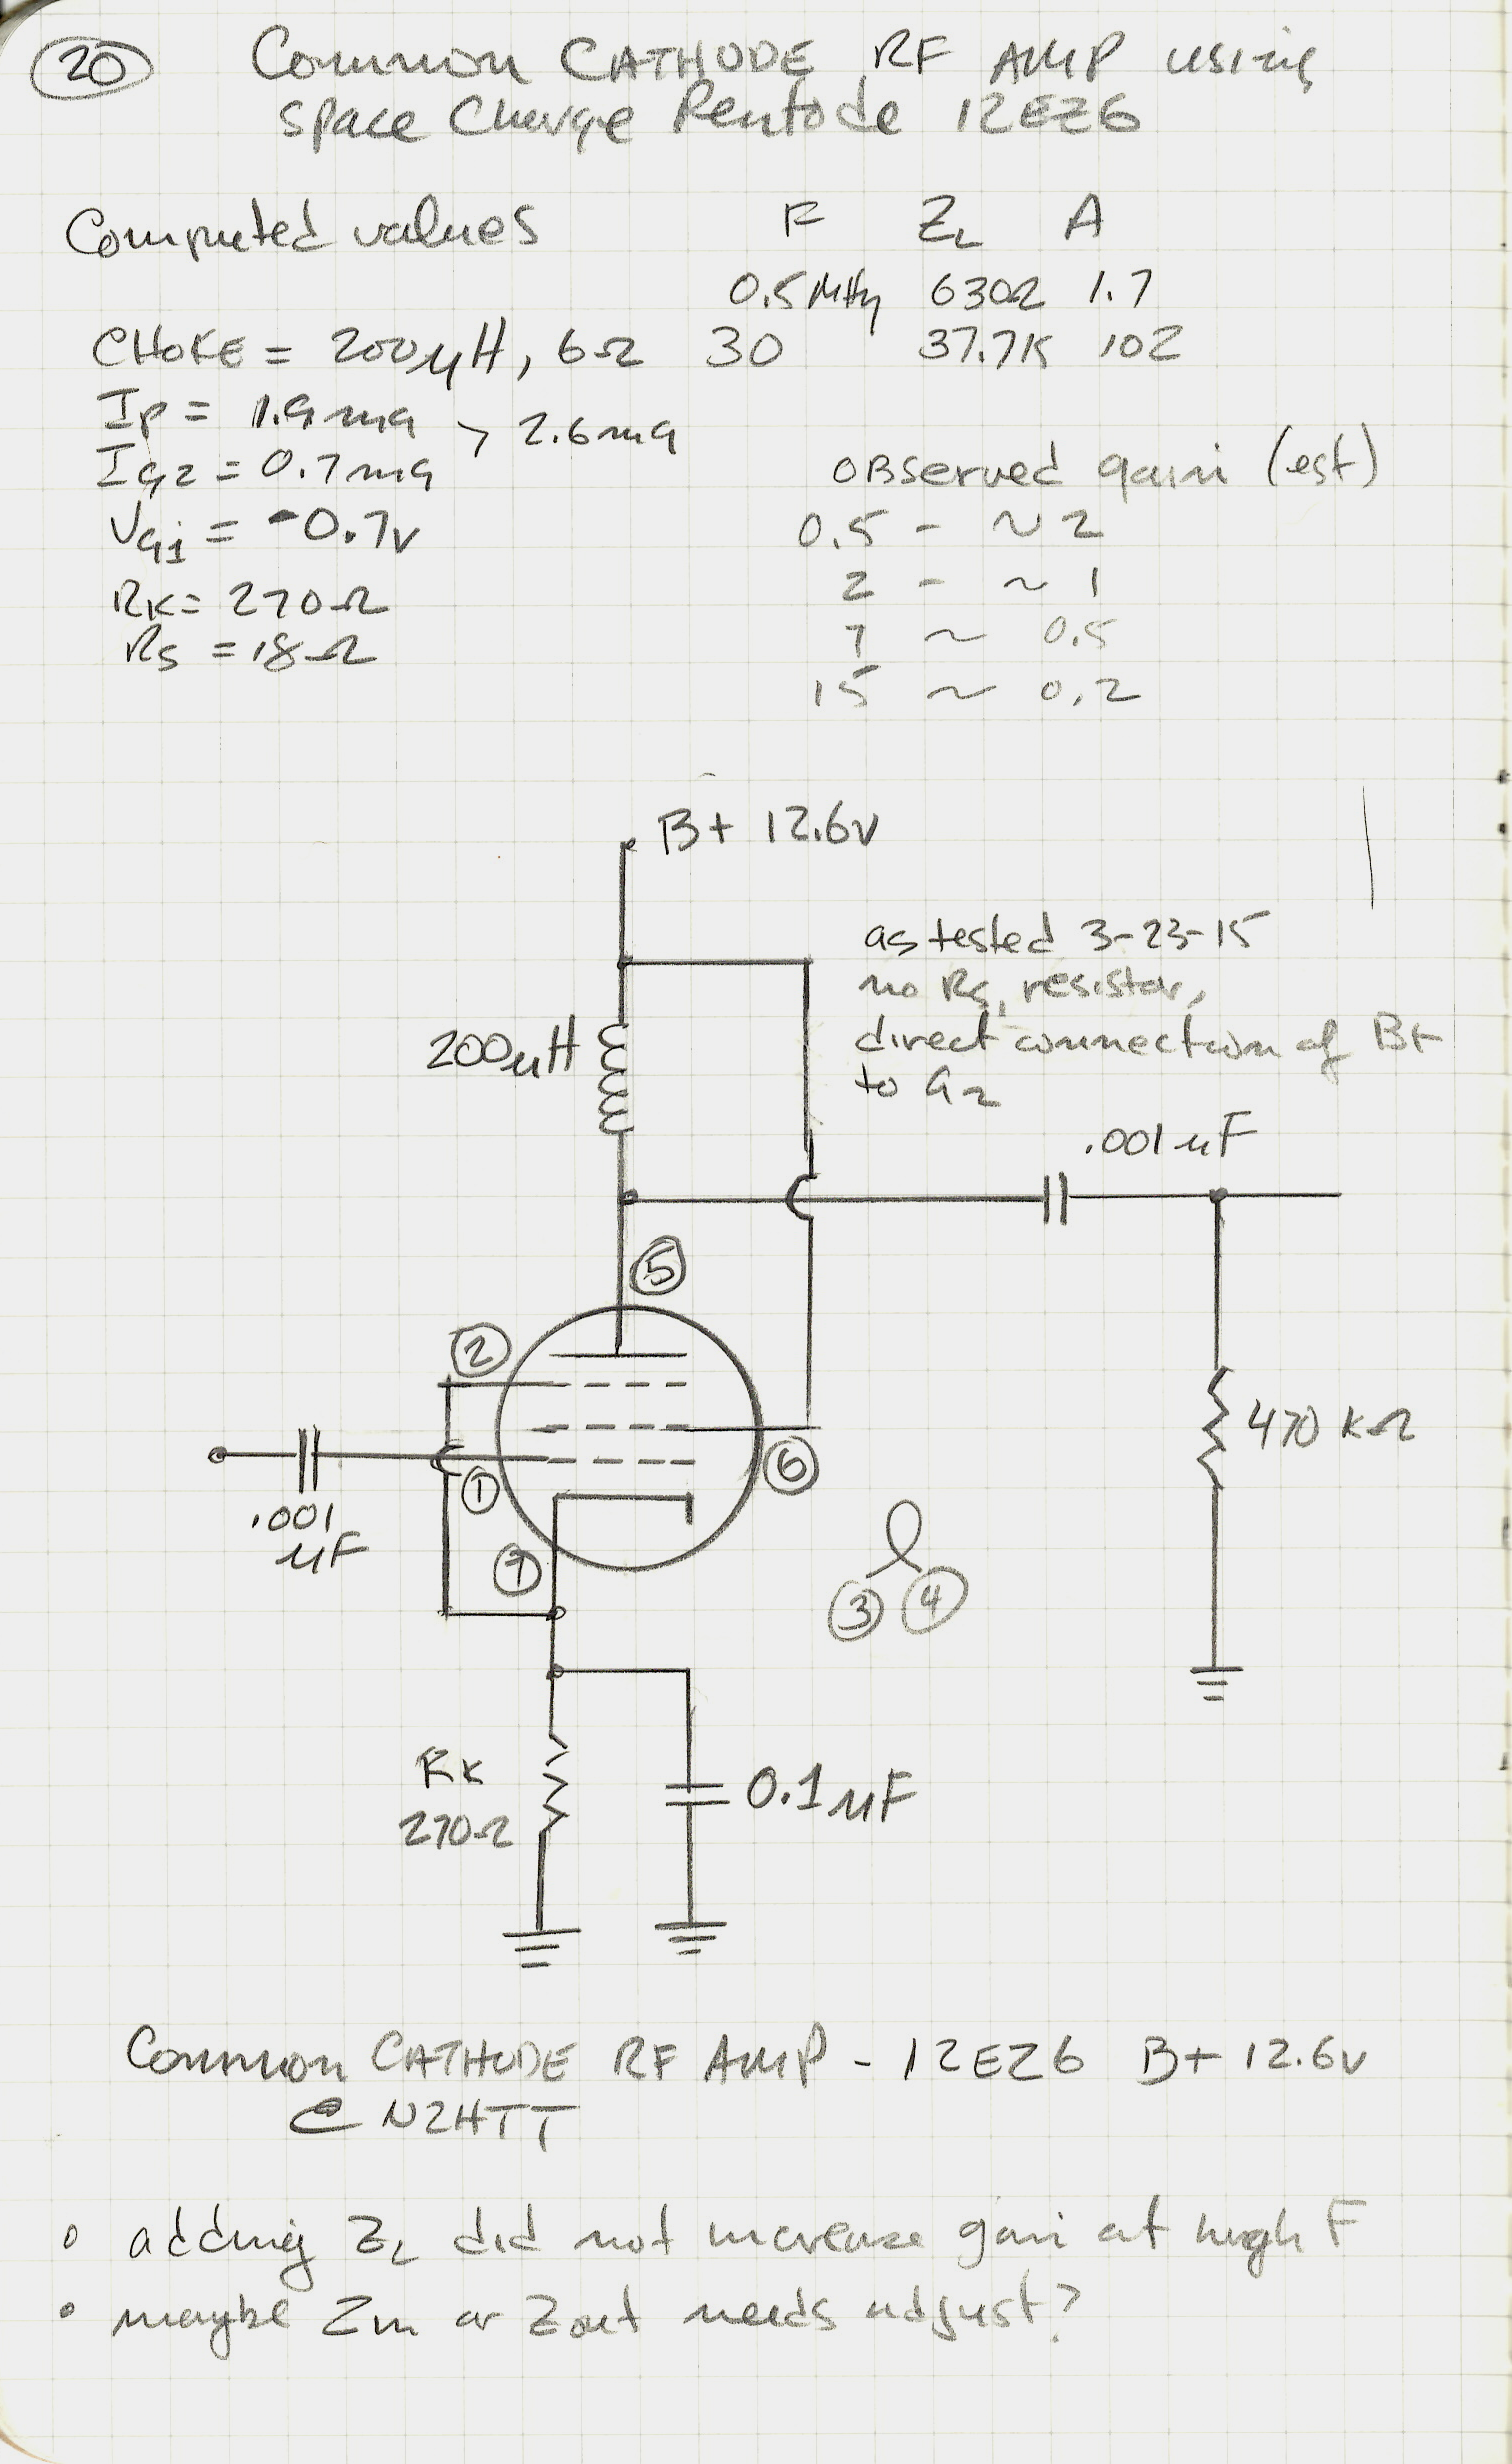 20 Common CATHODE RF AMP using
Space Charge Pentode 12EZ6
Computed values F ZL A
0.5 MHz 630Ω 1.7
CHOKE = 200μH, 6Ω 30 37.7K 102
Ip = 1.9ma > 2.6ma
IG2 = 0.7ma
VG1 = -0.7v
RK = 270Ω
RS = 18Ω
OBSERVED gain (est)
0.5 - ~ 2
2 - ~ 1
7 ~ 0.5
15 ~ 0.2
B+ 12.6v
as tested 3-23-15
no RS, resistor,
direct connection of B+
to G2
200μH
.001μF
5
2
1
6
7
3 4
.001
μF
470 KΩ
RK
270Ω
0.1μF
Common CATHODE RF AMP - 12EZ6 B+ 12.6v
@ N2HTT
• adding ZL did not increase gain at high F
• maybe Zin or Zout needs adjust?